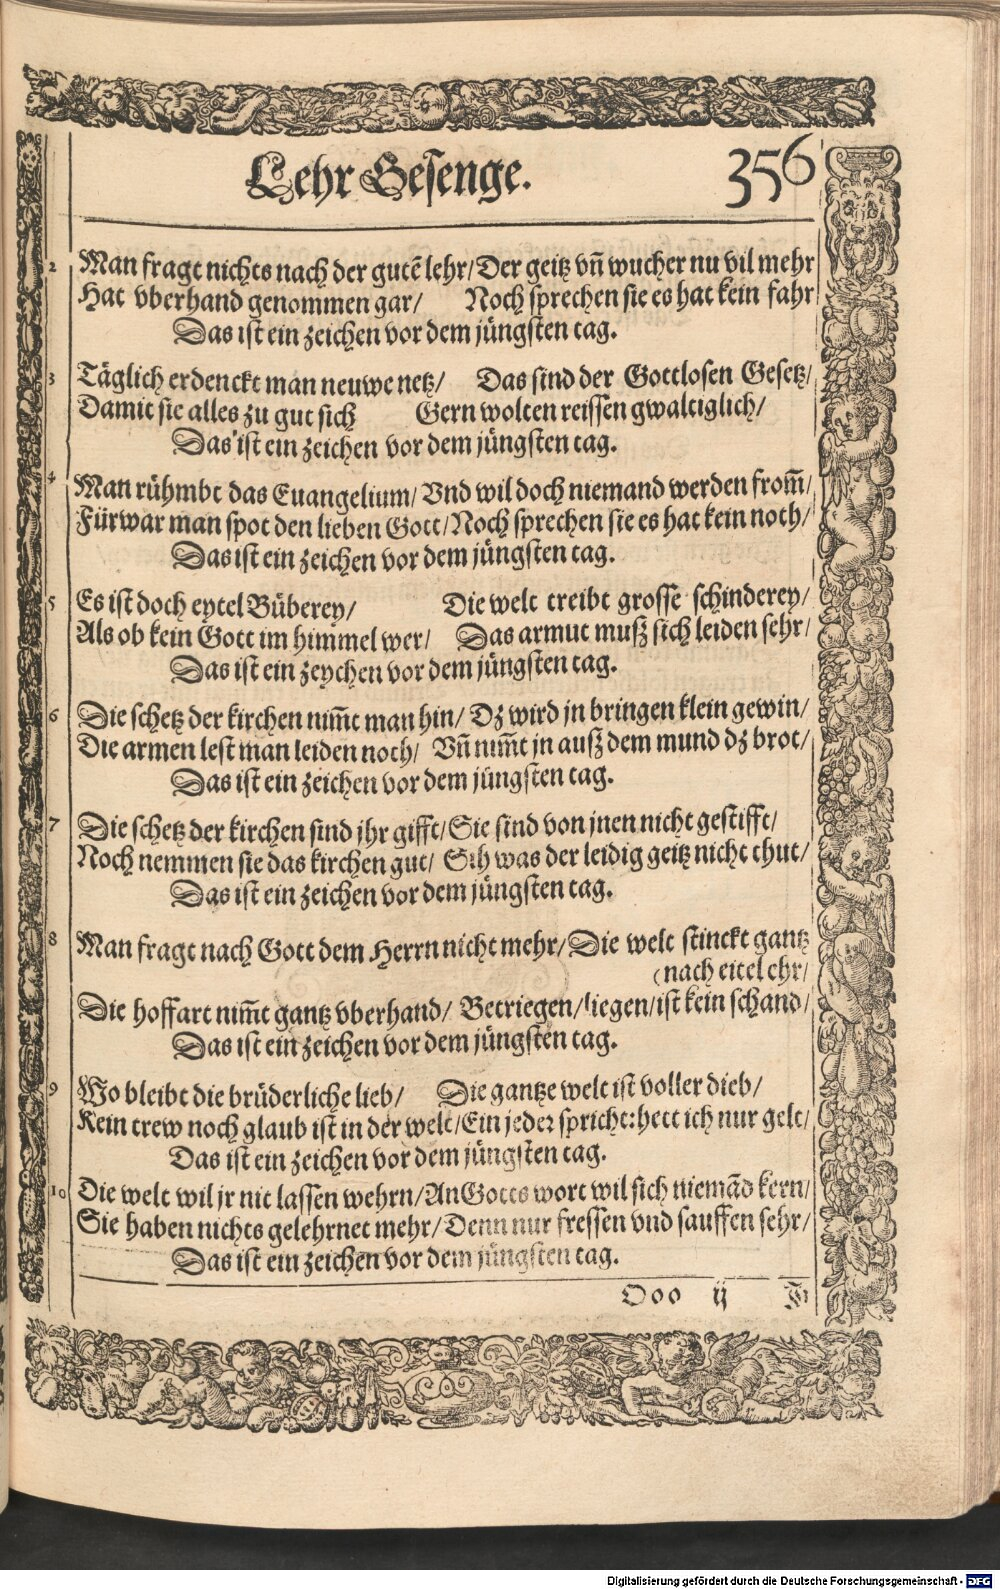 Lehr Gesenge. 356
2 Man fragt nichts nach der gutē lehr/ Der geitz vñ wucher nu vil mehr
Hat vberhand genommen gar/ Noch sprechen sie es hat kein fahr
Das ist ein zeichen vor dem jüngsten tag.
3 Täglich erdenckt man neuwe netz/ Das sind der Gottlosen Gesetz/
Damit sie alles zu gut sich Gern wolten reissen gwaltiglich/
Das ist ein zeichen vor dem jüngsten tag.
4 Man rühmbt das Euangelium/ Vnd wil doch niemand werden from̄/
Fürwar man spot den lieben Gott/ Noch sprechen sie es hat kein noth/
Das ist ein zeichen vor dem jüngsten tag.
5 Es ist doch eytel Büberey/ Die welt treibt grosse schinderey/
Als ob kein Gott im himmel wer/ Das armut muß sich leiden sehr/
Das ist ein zeychen vor dem jüngsten tag.
6 Die schetz der kirchen nim̄t man hin/ Dz wird jn bringen klein gewin/
Die armen lest man leiden noth/ Vñ nim̄t jn auß dem mund dz brot/
Das ist ein zeichen vor dem jüngsten tag.
7 Die schetz der kirchen sind jhr gifft/ Sie sind von jnen nicht gestifft/
Noch nemmen sie das kirchen gut/ Sih was der leidig geitz nicht thut/
Das ist ein zeichen vor dem jüngsten tag.
8 Man fragt nach Gott dem Herrn nicht mehr/ Die welt stinckt gantz
(nach eitel ehr/
Die hoffart nim̄t gantz vberhand/ Betriegen/ liegen/ ist kein schand/
Das ist ein zeichen vor dem jüngsten tag.
9 Wo bleibt die brüderliche lieb/ Die gantze welt ist voller dieb/
Kein trew noch glaub ist in der welt/ Ein jeder spricht: hett ich nur gelt/
Das ist ein zeichen vor dem jüngsten tag.
10 Die welt wil jr nit lassen wehrn/ An Gotts wort wil sich niemād kern/
Sie haben nichts gelehrnet mehr/ Denn nur fressen vnd sauffen sehr/
Das ist ein zeichen vor dem jüngsten tag.
Ooo ij
Digitalisierung gefördert durch die Deutsche Forschungsgemeinschaft - DFG